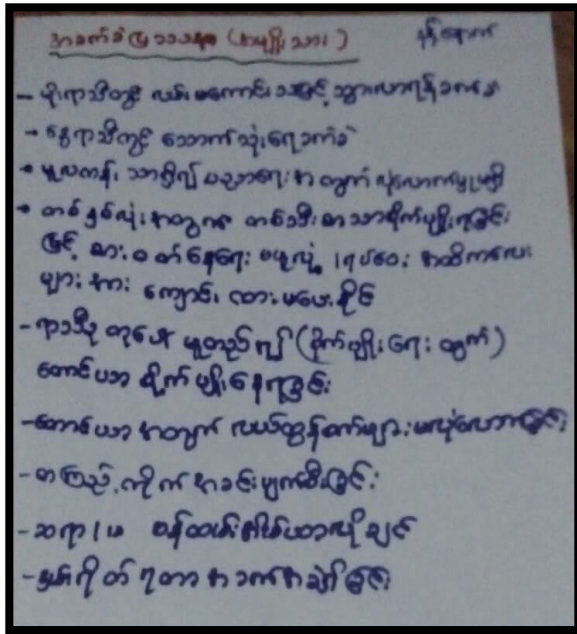 အခက်ခဲပြဿနာ (အမျိုးသား)
နန်နောက်
- မိုးရာသီတွင် လမ်းမကောင်းသဖြင့် သွားလာရန်ခက်ခဲ
- နွေရာသီတွင် သောက်သုံးရေခက်ခဲ
- မူလတန်း သာရှိ၍ ပညာရေးအတွက် လုံလောက်မှုမရှိ
- တစ်နှစ်လုံးအတွက် တစ်သီးစာသာစိုက်ပျိုးရခြင်း
ဖြင့် စားဝတ်နေရေး မပူလုံ၊ ရပ်ဝေး အထိကလေး
များအား ကျောင်းထားမပေးနိုင်
- ရာသီဥတုပေါ်မူတည်၍ (စိုက်ပျိုးရေးတွက်)
တောင်ပေါ် စိုက်ပျိုးနေရခြင်း
- တောင်ယာအတွက် လယ်ထွန်စက်များ မလုံလောက်ခြင်း
- တံခါး တိုက်အခင်းပျက်စီးခြင်း
- ဆရာ/မ ဝန်ထမ်းအိမ်ယာလိုချင်